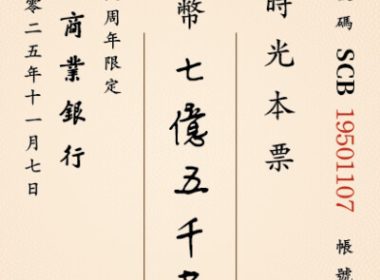 碼 SCB 19501107 帳號
時光本票
幣七億五千
周年限定
商業銀行
零二五年十一月七日